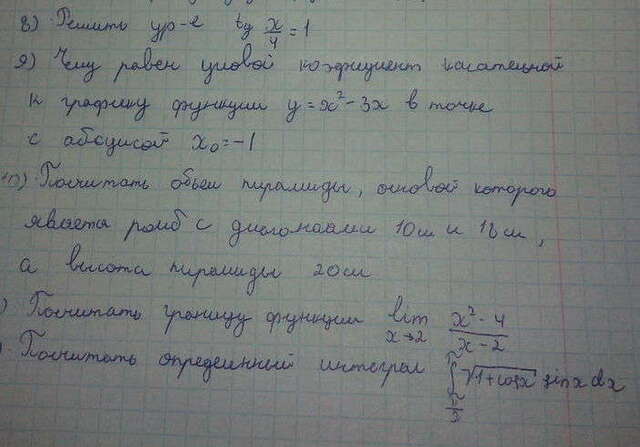 8) Решить ур-е tg x/4 = 1
9) Чему равен угловой коэфициент касательной
к графику функции y = x² - 3x в точке
с абсцисой x₀ = -1
10) Посчитать обьем пирамиды, основой которого
является ромб с диагоналями 10см и
а высота пирамиды 20см
) Посчитать границу функции lim x→2 x² - 4 / x - 2
Посчитать определенный интеграл ∫ √1+cosx sinx dx